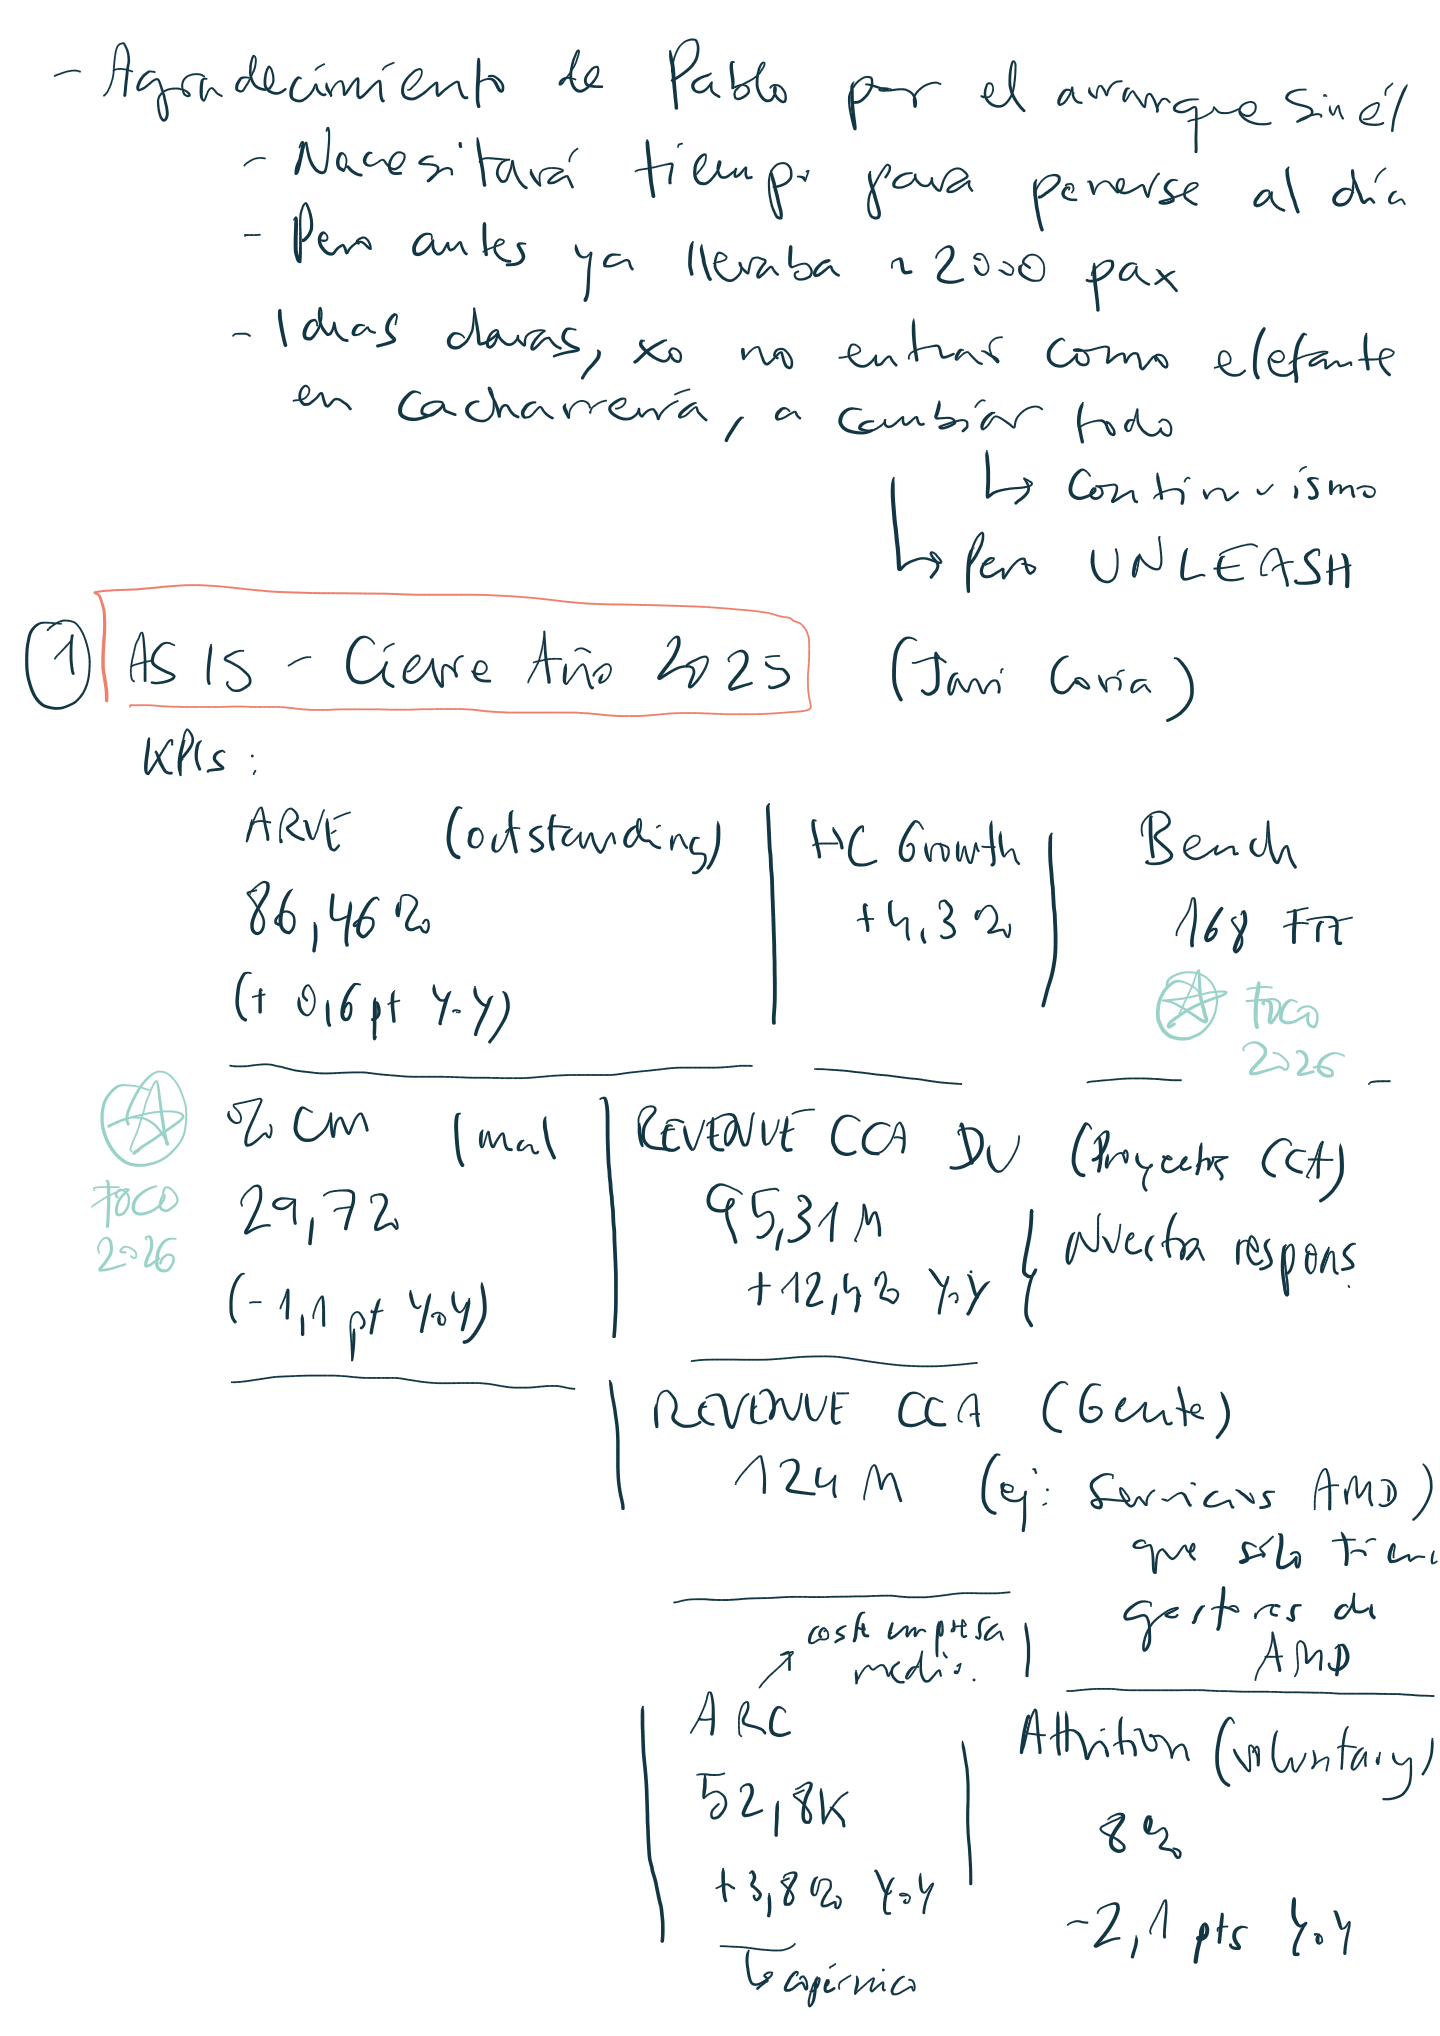 - Agradecimiento de Pablo por el arranque sin él
- Necesitará tiempo para ponerse al día
- Pero antes ya llevaba ~2000 pax
- Ideas claras, xo no entrar como elefante
en cacharrería, a cambiar todo
↳ Continuismo
↳ Pero UNLEASH
① AS IS - Cierre Año 2025 (Javi Coria)
KPIs:
ARVE (outstanding)
86,46%
(+ 0,6 pt Y.Y)
HC Growth
+4,3%
Bench
168 FTE
Foco
2026
% CM (mal
29,7%
(-1,1 pt YoY)
Foco
2026
REVENUE CCA DU (Proyectos CCA)
95,31 M
+12,4% YoY
Nuestra respons.
REVENUE CCA (Gente)
124 M (ej: Servicios AMD)
que sólo tiene
gestores de
AMD
coste empresa
medio.
ARC
52,8K
+3,8% YoY
↳ copérnico
Attrition (voluntary)
8%
-2,1 pts YoY